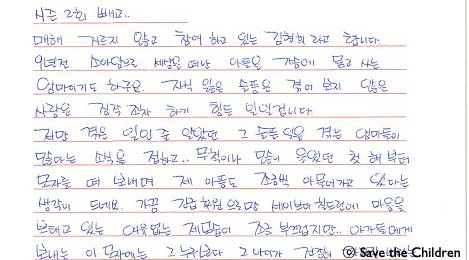 시즌 2회 빼고..
매해 거르지 않고 참여 하고 있는 김현희 라고 합니다.
9년전 소아암으로 세상을 떠난 아들을 가슴에 묻고 사는
엄마이기도 하구요. 자식 잃은 슬픔은 겪어 보지 않은
사람은 짐작 조차 하기 힘든 일일겁니다
저만 겪은 일인 줄 알았던 그 슬픔 익을 겪는 엄마들이
많다는 소식을 접하고.. 무척이나 많이 울었던 첫 해부터
모자를 떠 보내며 제 아픔도 조금씩 아물어가고 있다는
생각이 드네요. 가끔 긴급 후원으로만 세이브더칠드런에 마음을
보태고 있는 여유없는 제 모습이 조금 부끄럽지만.. 아가들에게
보내는 이 모자에는 그 누구보다 그 나이가 건강해
© Save the Children